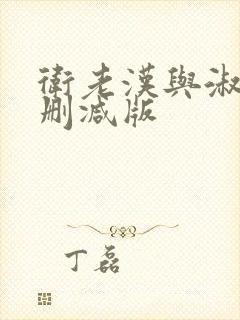 衛老漢與淑
刪減版
丁磊